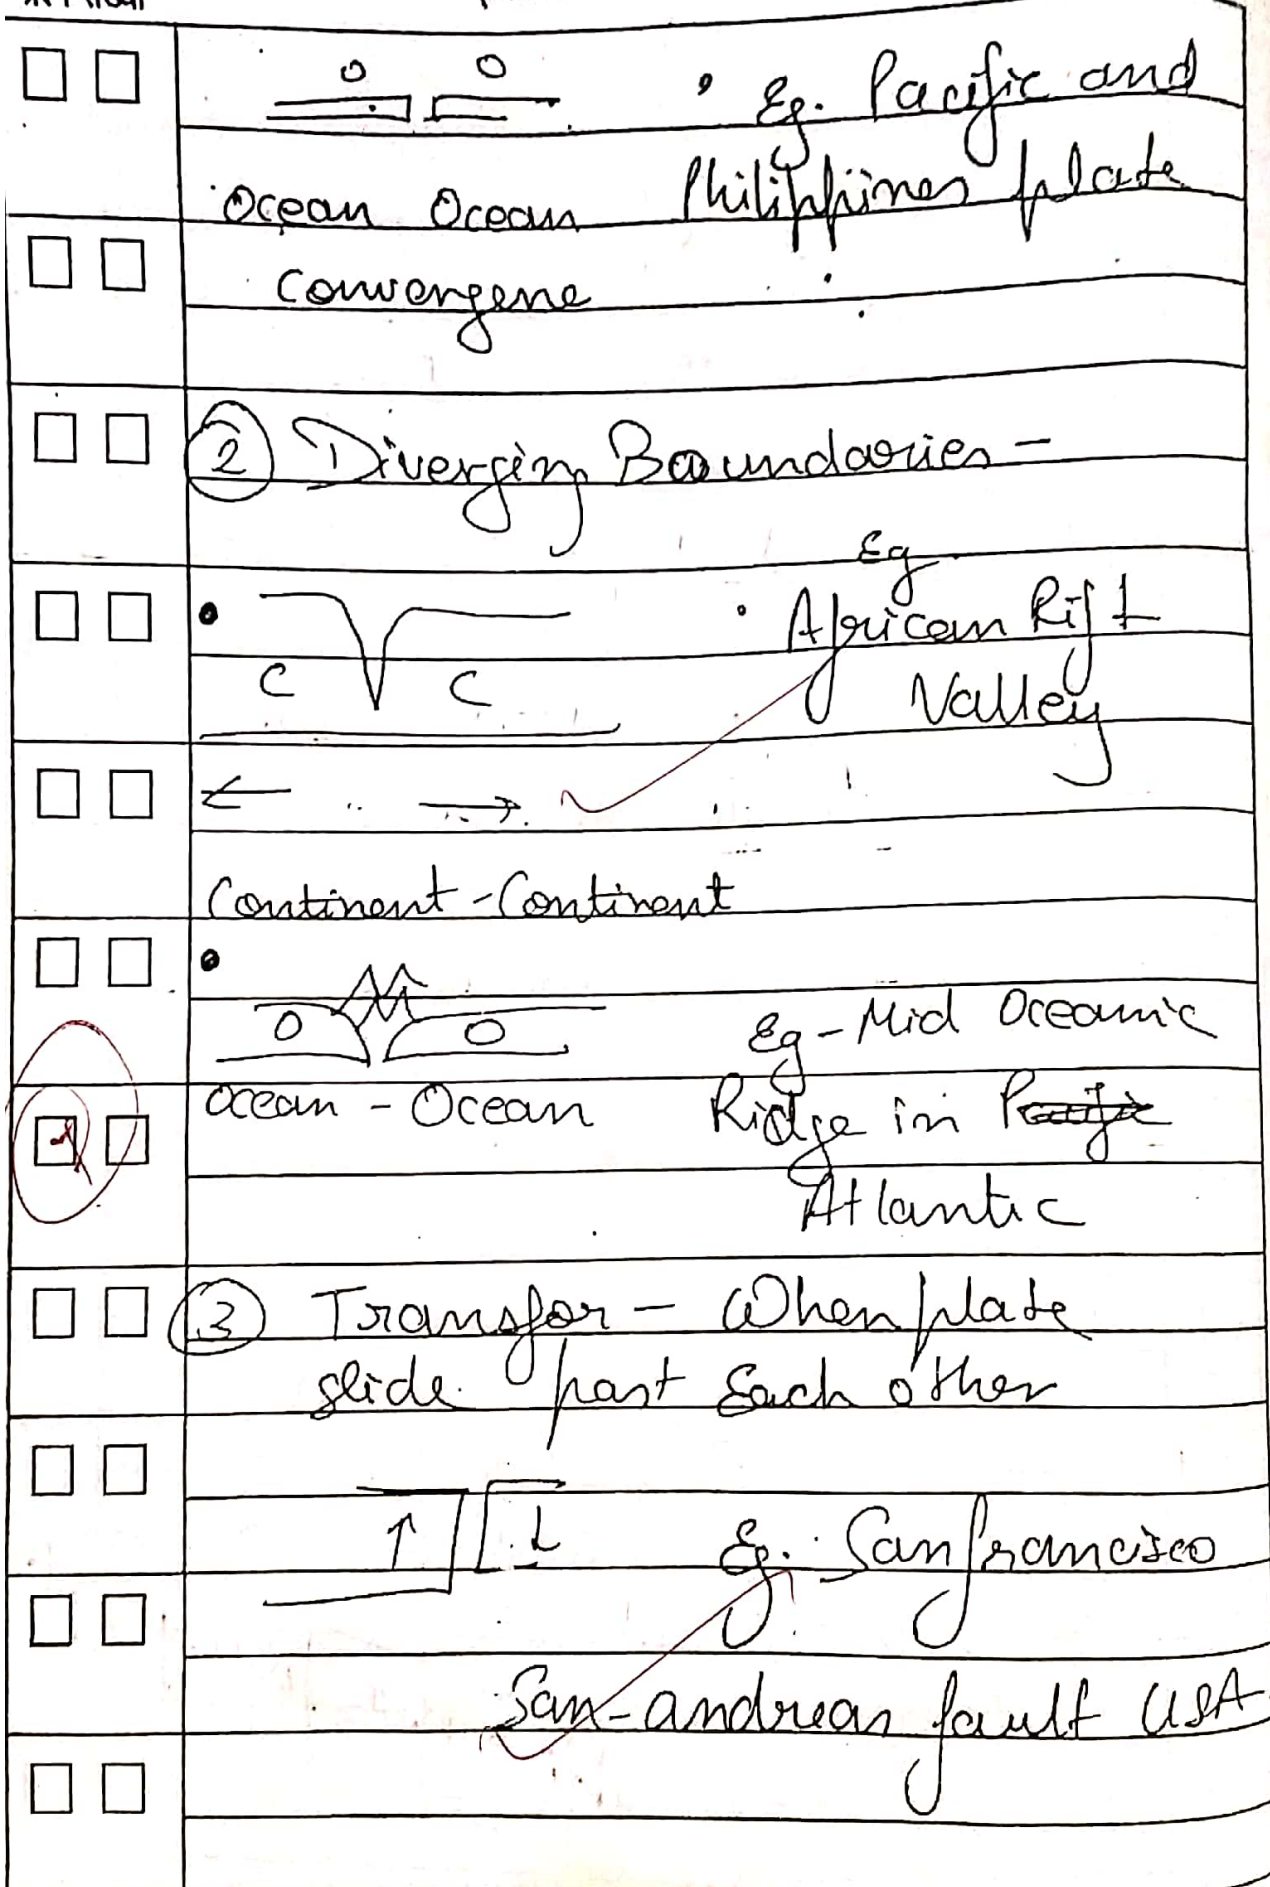 O O
• Eg. Pacific and
Philippines plate
Ocean Ocean
Convergene
② Diverging Boundaries -
Eg
• African Rift
Valley
C C
Continent - Continent
O O
Eg - Mid Oceanic
Ocean - Ocean
Ridge in Pacific
Atlantic
③ Transfor - When plate
slide past Each other
Eg. Sanfrancisco
San-andreas fault USA